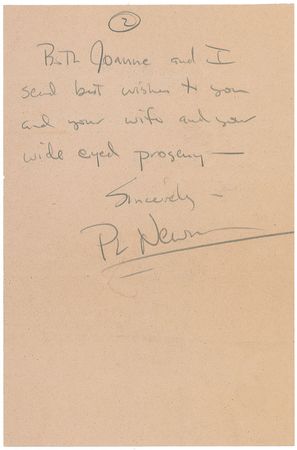 2
Both Joanne and I
send best wishes to you
and your wife and your
wide eyed progeny —
Sincerely —
PL Newm